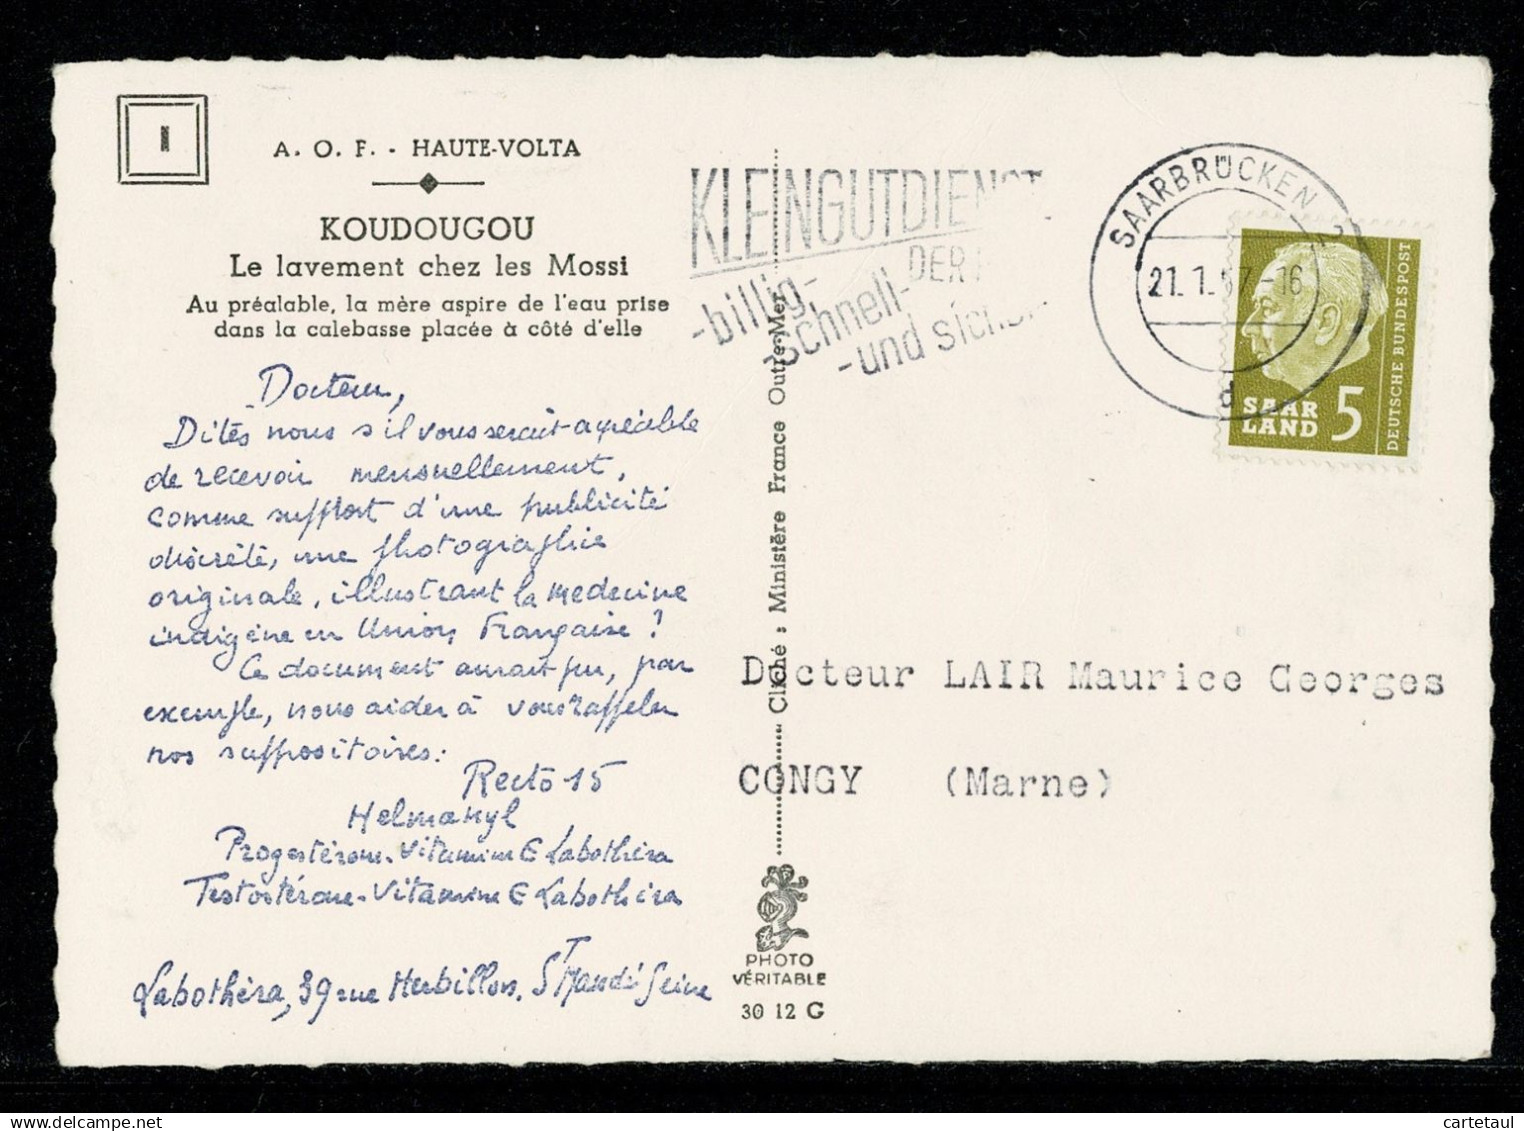 I
A. O. F. - HAUTE-VOLTA
KOUDOUGOU
Le lavement chez les Mossi
Au préalable, la mère aspire de l'eau prise
dans la calebasse placée à côté d'elle
Docteur,
Dités nous s'il vous serait agréable
de recevoir mensuellement,
comme support d'une publicité
discrète, une photographie
originale, illustrant la medecine
indigène en Union Française ?
Ce document aurait pu, par
exemple, nous aider à vous rappeler
nos suppositoires :
Recto 15
Helmanyl
Progestérone-Vitamine E Labothéra
Testostérone-Vitamine E Labothéra
Labothéra, 39 rue Herbillon, St Mandé Seine
Cliché : Ministère France Outre-Mer
PHOTO
VÉRITABLE
30 12 G
KLEINGUTDIENST
DER
-billig-
-schnell-
-und
SAARBRÜCKEN 2
21. 1. 57-16
d
SAAR
LAND 5
DEUTSCHE BUNDESPOST
Docteur LAIR Maurice Georges
CONGY (Marne)
cartetaul